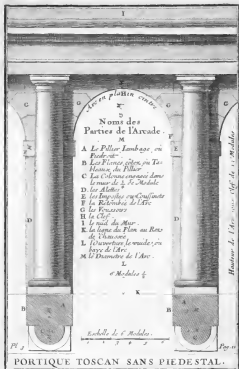 I
Arc en plain cintre
G
E
D
Noms des
Parties de l'Arcade.
M
A Le Pillier Iambage, ou
Piedroit
B Les Flancs, côtez, ou Ta-
bleaux du Pillier
C La Colonne engagée dans
le mur de ⅛ de Module
D les Alettes
E les Impostes ou Coussinets
F la Retombée de l'Arc
G les Voussoirs
H la Clef
I le nud du Mur.
K la ligne du Plan au Rets
de Chaussée
L l'Ouverture, le vuide, ou
bays de l'Arc
M le Diametre de l'Arc.
L
6 Modules ½
K
Hauteur de l'Arc sous Clef de Modules
A
B
C
D
Eschelle de 6 Modules.
Pl. 3
Pag. 21
PORTIQUE TOSCAN SANS PIEDESTAL.